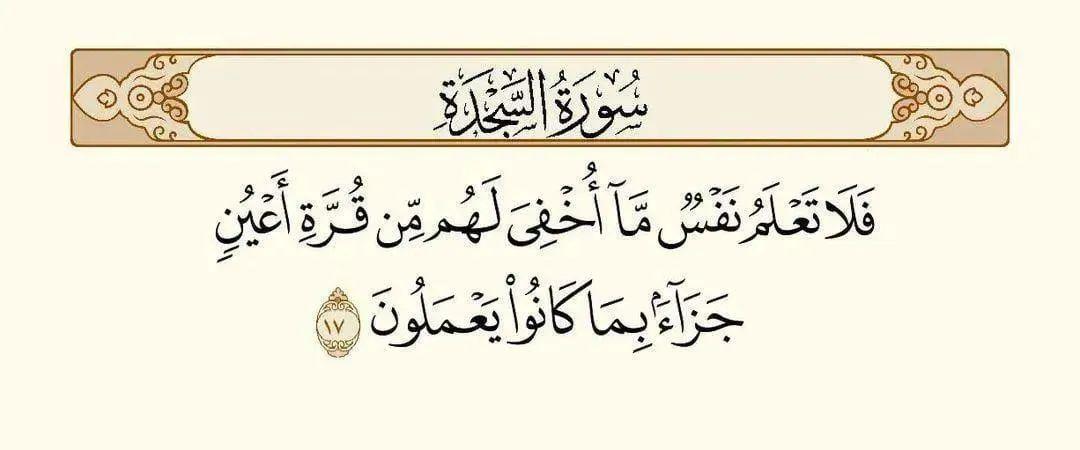 سُورَةُ السَّجْدَةِ
فَلَا تَعْلَمُ نَفْسٌ مَّآ أُخْفِىَ لَهُم مِّن قُرَّةِ أَعْيُنٍ
جَزَآءًۢ بِمَا كَانُوا۟ يَعْمَلُونَ ١٧